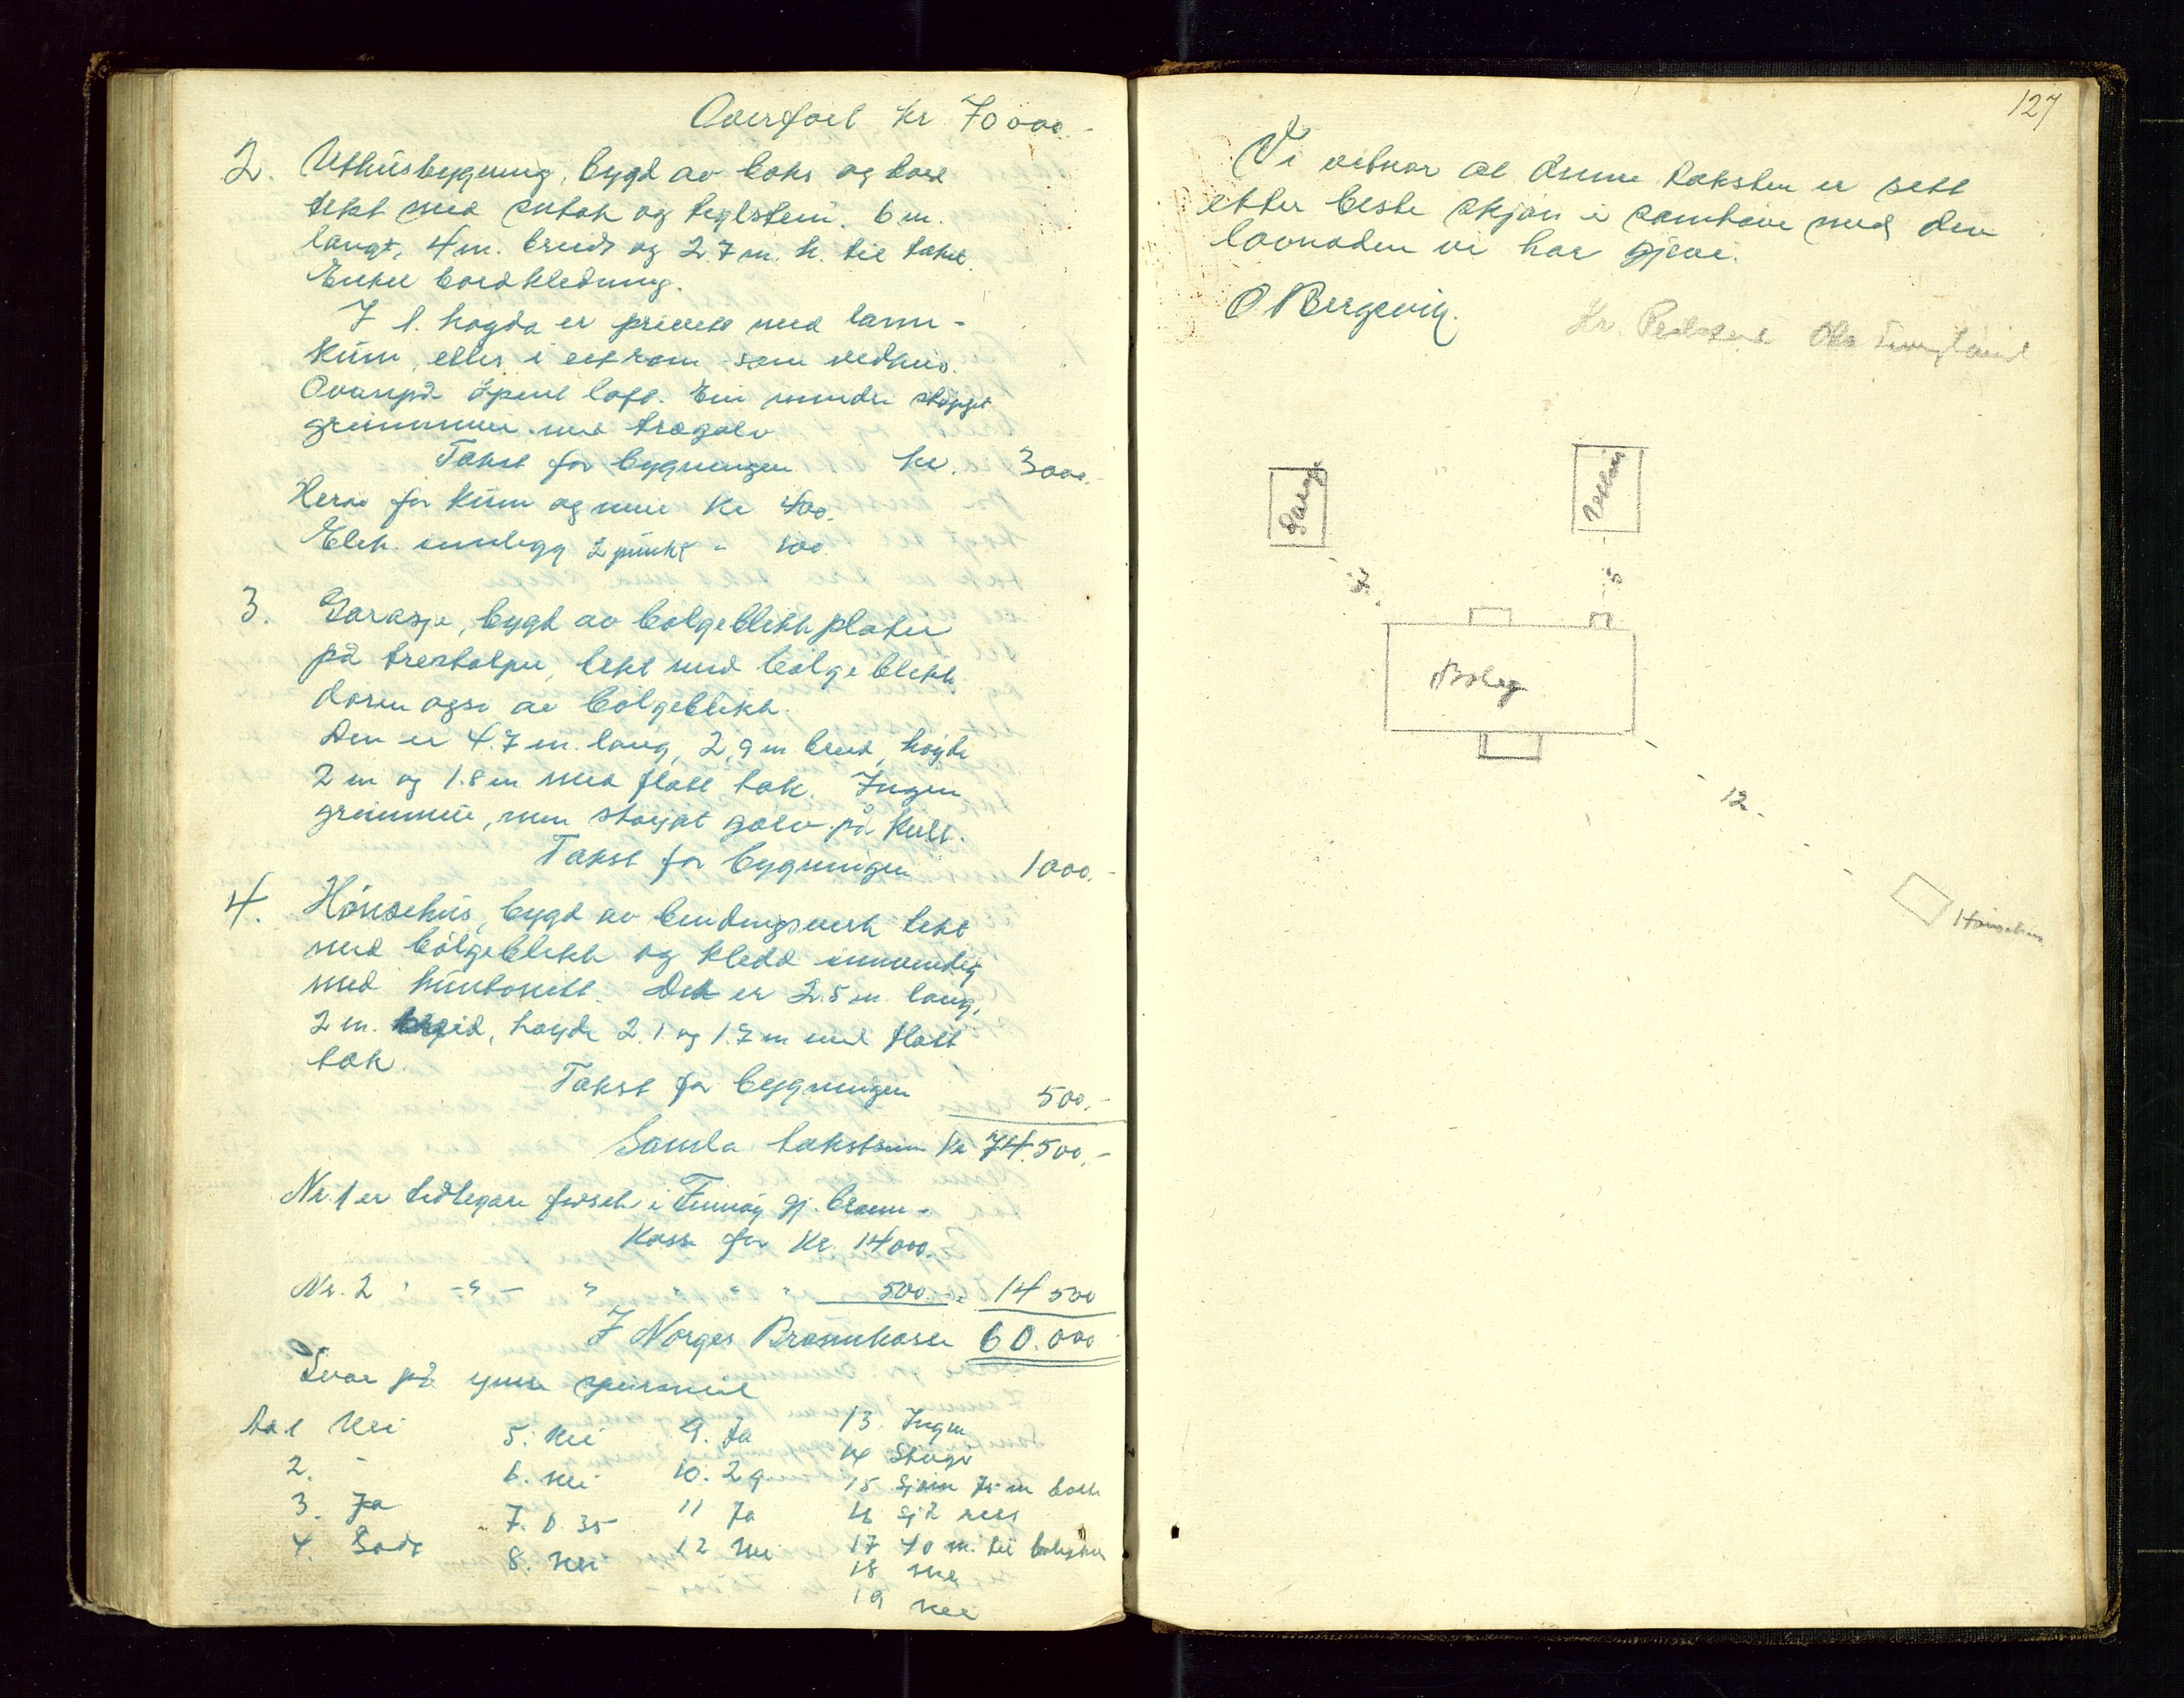 Overført kr 70000.-
2. Uthusbygning, bygd av boks og bord
tekt med sutak og teglstein. 6 m.
langt, 4 m. breidt og 2.7 m. h. til taket.
Enkel bordkledning.
I 1. høgda er privett med larm-
kum, ellers i eet rom som vedhus.
Ovanpå åpent loft. Ein mindre støypt
grunnmur med tregolv
Takst for bygningen kr. 3000.-
Herav for kum og mur kr 400.
Elek. innlegg 2 punkt " 100
3. Garasje, bygd av bølgeblikkplater
på trestolper, tekt med bølgeblikk.
Døren også av bølgeblikk.
Den er 4.7 m. lang, 2,9 m breid, høgde
2 m og 1.8 m med flatt tak. Ingen
grunnmur, men støypt golv på kult.
Takst for bygningen 1000.-
4. Hønsehus, bygd av bindingsverk tekt
med bølgeblikk og kledd innvendig
med huntonitt. Det er 2.5 m. lang,
2 m. breid, høgde 2.1 og 1.7 m med flatt
tak.
Takst for bygningen 500.-
Samla takstsum kr 74.500.-
Nr. 1 er tidlegare forsek. i Finnøy gj. brann-
kasse for kr. 14000.-
Nr. 2 " -"- " " " " 500.- 14 500
I Norges Brannkasse 60.000
Svar på ymse spursmål
Aa 1 Nei 5. Nei 9. Ja 13. Ingen
2. - 6. Nei 10. 2 g. 14 Stugo
3. Ja 7. 0.35 11 Ja 15 Sjøen 75 m borte
4. Godt 8. Nei 12 Nei 16 Sjå
17 40 m. til
18 Nei
19 Nei
127
Vi vitnar at denne taksten er sett
etter beste skjøn i samhøve med den
lovnaden vi har gjeve.
O Bergsvik. Kr. Pedersen Ola
Garasj.
Uthus
7.
5
Bolig
12.
Hønsehus